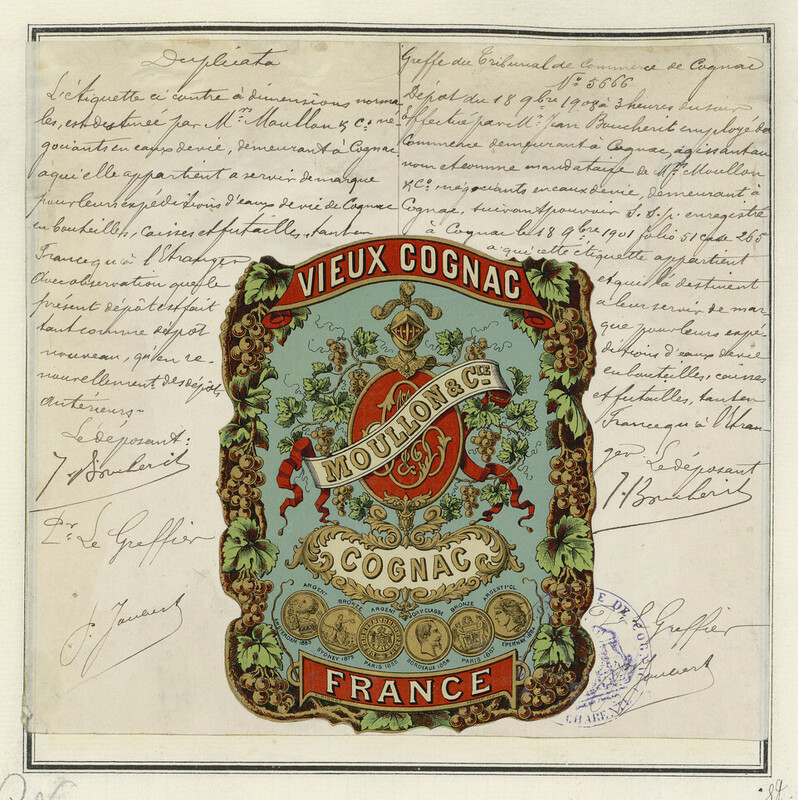 Duplicata
L'étiquette ci contre à dimensions norma
les, est destinée par Mrs Moullon & Cie né
gociants en eaux de vie, demeurant à Cognac
à qui elle appartient à servir de marque
pour leurs expéditions d'eaux de vie de Cognac
en bouteilles, caisses et futailles, tant en
France qu'à l'Etranger
Avec observation que le
présent dépôt est fait
tant comme dépôt
nouveau, qu'en re-
nouvellement des dépôts
antérieurs.-
Le déposant:
J. Boucherit
Pr. Le Greffier
J. Joubert
Greffe du Tribunal de Commerce de Cognac
No 5666
Dépôt du 18 9bre 1908 à 3 heures du soir
Effectué par Mr. Jean Boucherit employé de
Commerce demeurant à Cognac, agissant au
nom et comme mandataire de Mrs Moullon
& Co, négociants en eaux de vie, demeurant à
Cognac, suivant pouvoir S.S.p. enregistré
à Cognac le 18 9bre 1901 folio 51 case 265
à qui cette étiquette appartient
et qui la destinent
à leur servir de mar
que pour leurs expé-
ditions d'eaux de vie
en bouteilles, caisses
et futailles, tant en
France qu'à l'Etran
ger. Le déposant
J. Boucherit
Le Greffier
Joubert
VIEUX COGNAC
MOULLON & CIE
COGNAC
ARGENT BRONZE ARGENT OR 1e CLASSE BRONZE ARGENT 1e CL.
AMSTERDAM 1883 SYDNEY 1879 PARIS BORDEAUX PARIS EPERNAY
FRANCE
DE COGNAC
CHARENTE